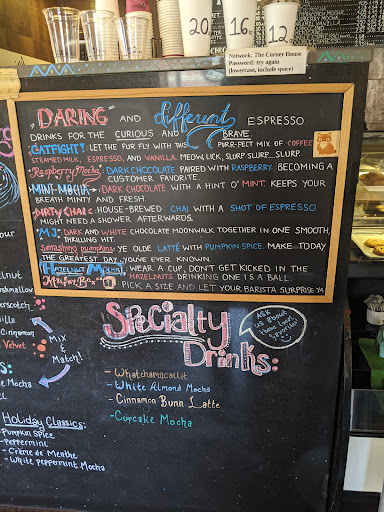 20 oz
16 oz
12
Network: The Corner House
Password: try again
(lowercase, include space)
"DARING" AND different ESPRESSO
DRINKS FOR THE CURIOUS AND BRAVE.
CATFIGHT! LET THE FUR FLY WITH THIS PURR-FECT MIX OF COFFEE,
STEAMED MILK, ESPRESSO, AND VANILLA. MEOW, LICK, SLURP SLURP...SLURP
Raspberry Mocha: DARK CHOCOLATE PAIRED WITH RASPBERRY. BECOMING A
CUSTOMER FAVORITE.
MINT MOCHA: DARK CHOCOLATE WITH A HINT O' MINT. KEEPS YOUR
BREATH MINTY AND FRESH.
DIRTY CHAI: HOUSE-BREWED CHAI WITH A SHOT OF ESPRESSO
MIGHT NEED A SHOWER AFTERWARDS.
MJ: DARK AND WHITE CHOCOLATE MOONWALK TOGETHER IN ONE SMOOTH,
THRILLING HIT.
Smashing pumpkins: YE OLDE LATTÉ WITH PUMPKIN SPICE. MAKE TODAY
THE GREATEST DAY YOU'VE EVER KNOWN.
HAZELNUT MOCHA: WEAR A CUP, DON'T GET KICKED IN THE
HAZELNUTS. DRINKING ONE IS A BALL.
Mystery Box: PICK A SIZE AND LET YOUR BARISTA SURPRISE YA!
Specialty
Drinks:
ASK US ABOUT
- Whatchamacallit
- White Almond Mocha
- Cinnamon Bunn Latte
- Cupcake Mocha
Cinnamon
Velvet
Mix
&
Match!
Holiday Classics:
-Pumpkin Spice
-Peppermint
- Crème de Menthe
- White Peppermint Mocha